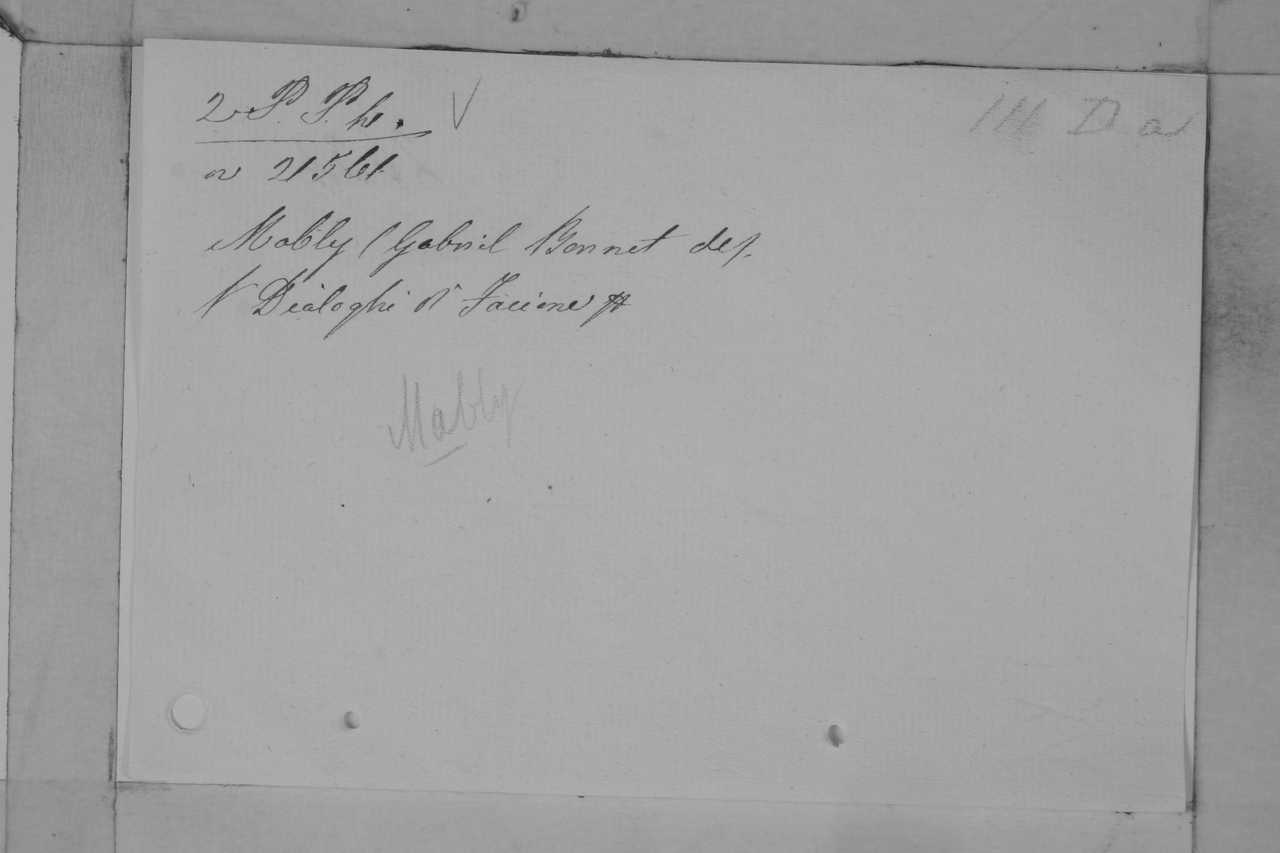 2 P. Ph. V
III D a
n 21561
Mably (Gabriel Bonnet de).
V Dialoghi di Focione
Mably